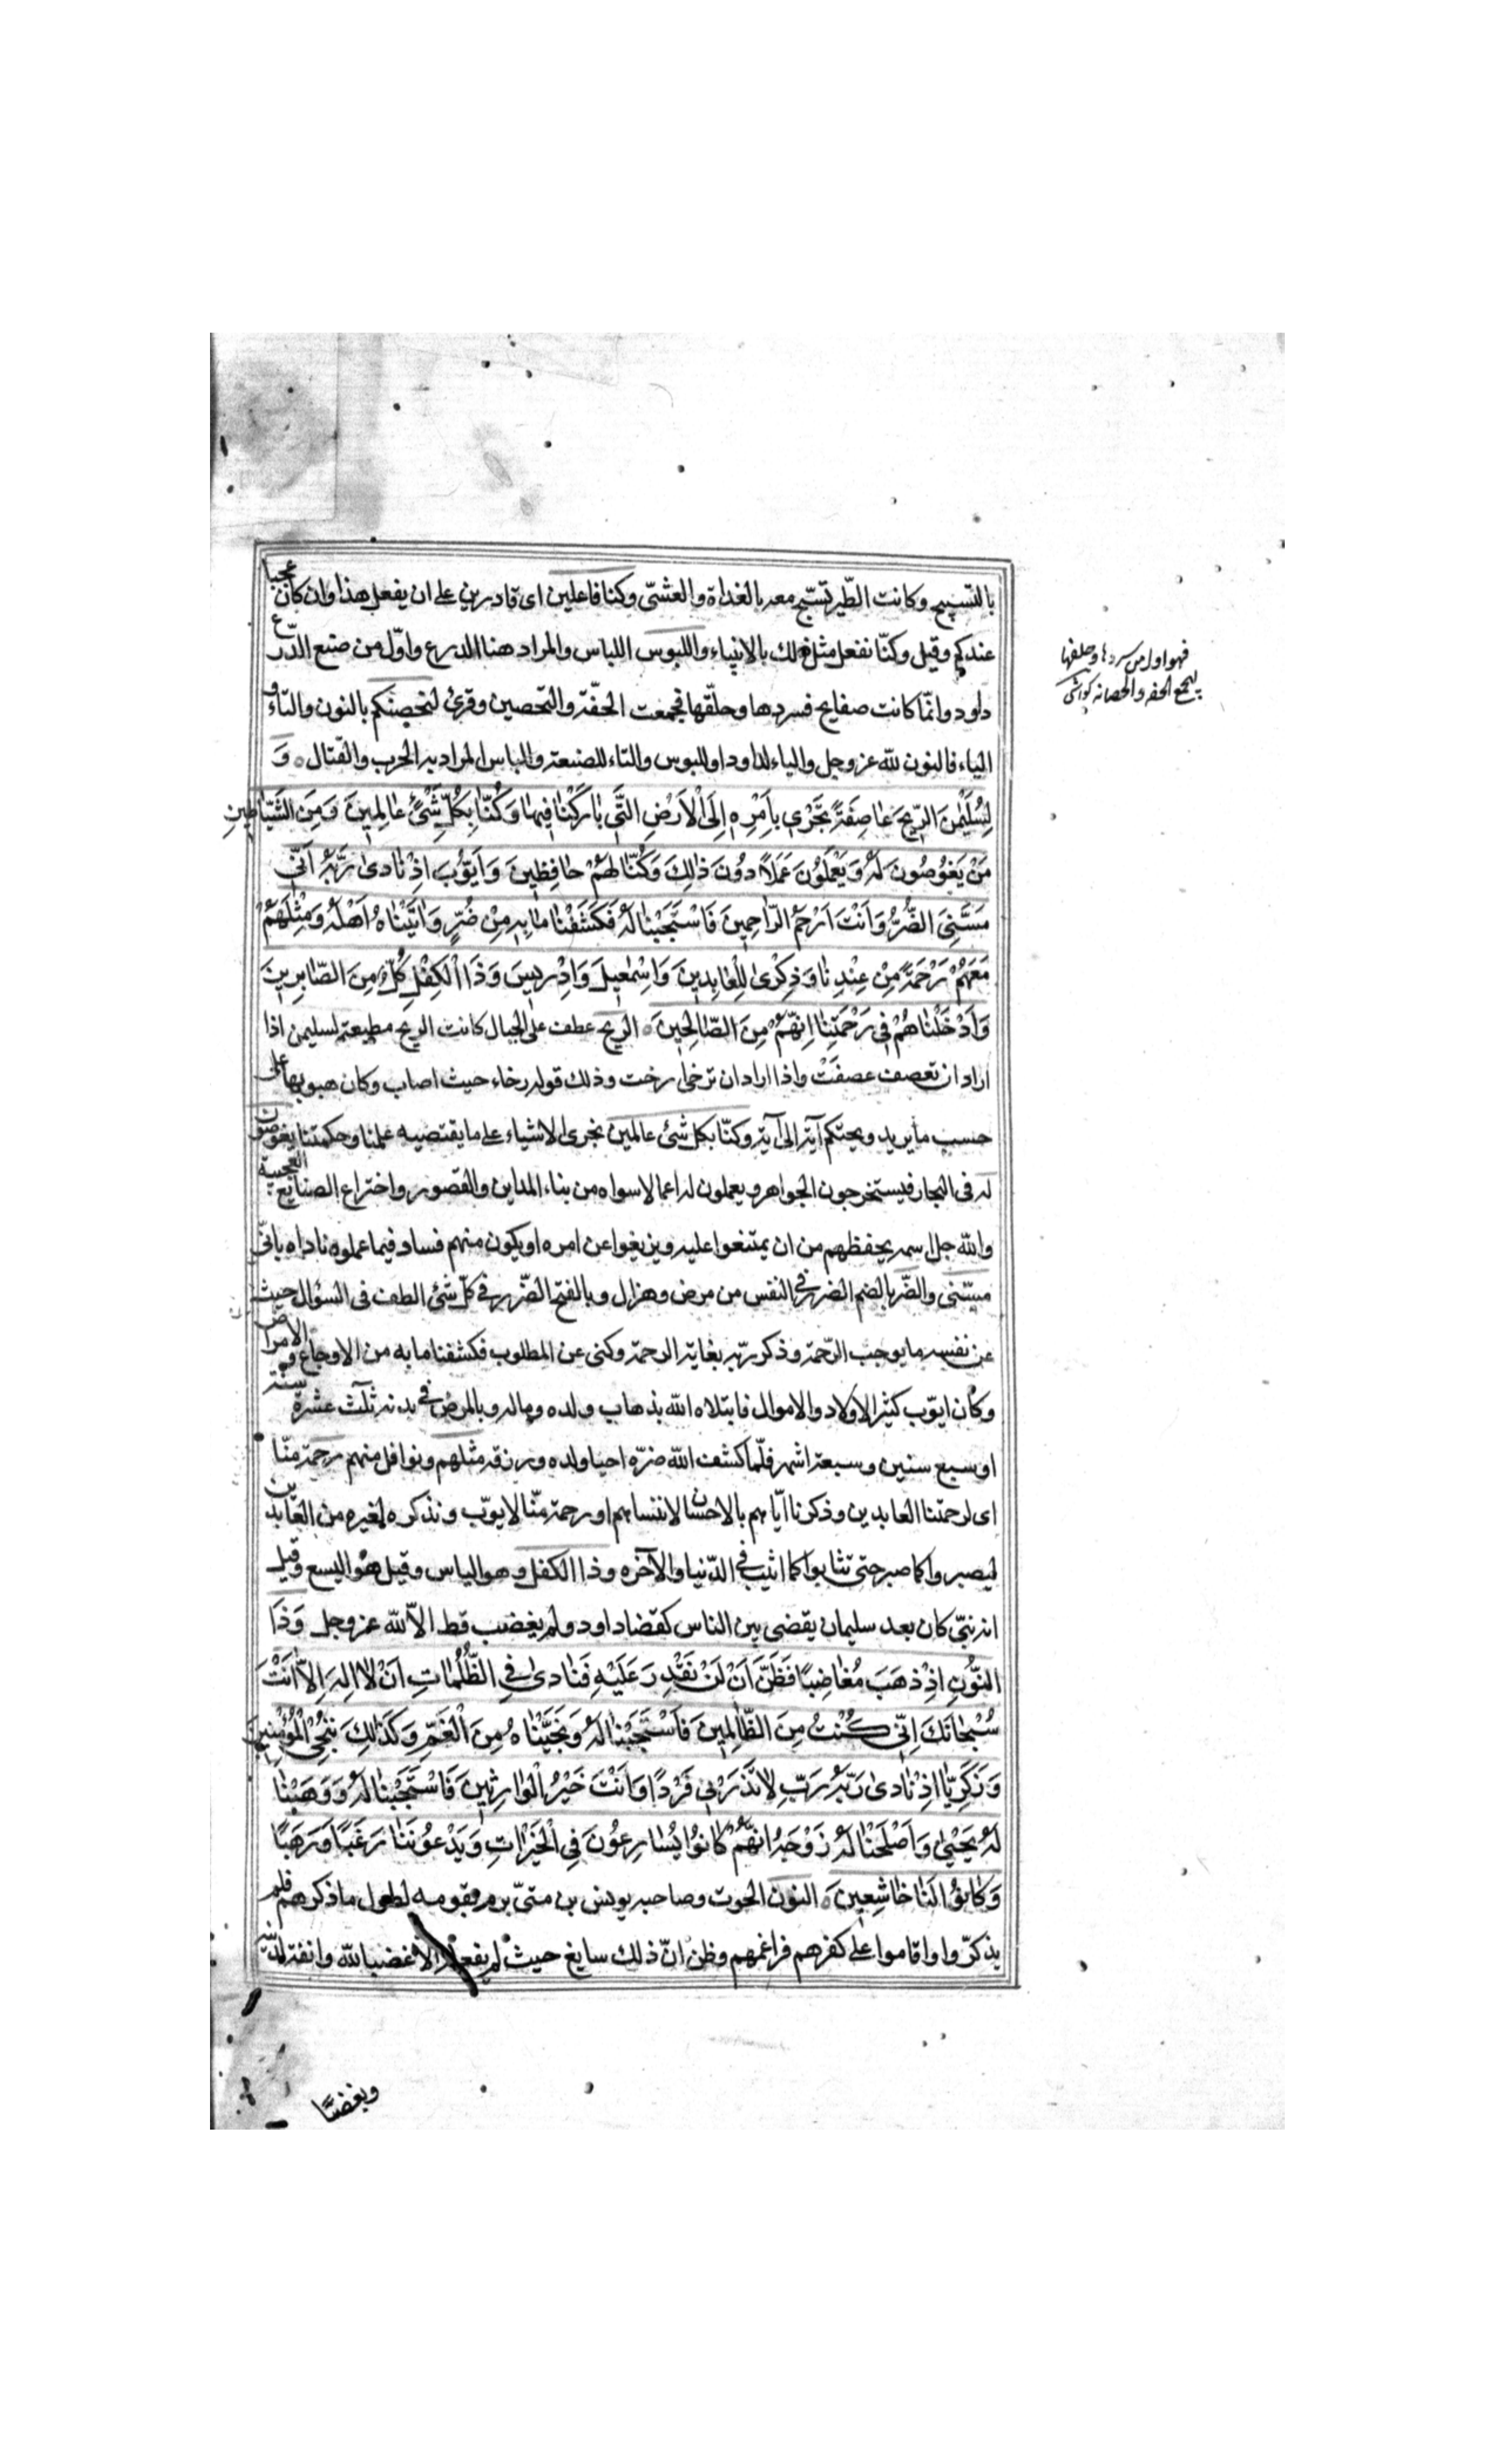 بالتسبيح وكانت الطّير تسبّح معه بالغداة والعشىّ وكنا فاعلين اى قادرين على ان يفعل هذا وان كان عجبا
عندكم وقيل وكنّا نفعل مثل ذلك بالانبياء واللبوس اللباس والمراد هنا الدرع واوّل من صنع الدّرع
داود وانّما كانت صفايح فسردها وحلّقها فجمعت الخفّة والتحصين وقرئ لنحصنكم بالنون والتاء و
الياء فالنون لله عز وجل والياء لداود او للبوس والتاء للصنعة والباس المراد به الحرب والقتال وَ
لِسُلَيْمٰنَ الرّيحَ عٰاصِفَةً تَجْرٖى بِاَمْرِهٖ اِلَى الْاَرْضِ الَّتٖى بٰارَكْنٰا فٖيهٰا وَكُنّٰا بِكُلِّ شَئٍْ عٰالِمٖينَ وَمِنَ الشَّيٰاطٖينِ
مَنْ يَغُوصُونَ لَهُ وَيَعْمَلُونَ عَمَلاً دُونَ ذٰلِكَ وَكُنّٰا لَهُمْ حٰافِظٖينَ وَاَيّوُبَ اِذْ نٰادىٰ رَبَّهُ اَنّٖى
مَسَّنِىَ الضُّرُّ وَاَنْتَ اَرْحَمُ الرّٰاحِمٖينَ فَاسْتَجَبْنٰا لَهُ فَكَشَفْنٰا مٰا بِهٖ مِنْ ضُرٍّ وَاٰتَيْنٰاهُ اَهْلَهُ وَمِثْلَهُمْ
مَعَهُمْ رَحْمَةً مِنْ عِنْدِنٰا وَذِكْرىٰ لِلْعٰابِدٖينَ وَاِسْمٰعٖيلَ وَاِدْرٖيسَ وَذَا الْكِفْلِ كُلٌّ مِنَ الصّٰابِرٖينَ
وَاَدْخَلْنٰاهُمْ فٖى رَحْمَتِنٰا اِنَّهُمْ مِنَ الصّٰالِحٖينَ الريح عطف على الجبال كانت الريح مطيعة لسليمن اذا
اراد ان تعصف عصفَتْ واذا اراد ان ترخى ارخت وذلك قوله رخاء حيث اصاب وكان هبوبها على
حسب ما يريد ويحتكم آية الى آية وكنّا بكل شئ عالمين نجرى الاشياء على ما يقتضيه علمنا وحكمتنا يغوصون
له فى البحار فيستخرجون الجواهر ويعملون له اعمالا سواه من بناء المداين والقصور واختراع الصنايع العجيبة
والله جل اسمه يحفظهم من ان يمتنعوا عليه ويزيغوا عن امره او يكون منهم فساد فيما عملوه ناداه بانّى
مسّنى والضّر بالضم الضرر فى النفس من مرض وهزال وبالفتح الضّرر فى كلّ شئ الطف فى السؤال حيث
عن نفسه ما يوجب الرّحمة وذكر ربّه بغاية الرحمة وكنى عن المطلوب فكشفنا ما به من الاوجاع والامراض
وكان ايّوب كثير الاولاد والاموال فابتلاه الله بذهاب ولده وماله وبالمرض فى بدنه ثلث عشرة سنة
او سبع سنين وسبعة اشهر فلّما كشف الله ضرّه احيا ولده ورزقه مثلهم ونوافل منهم رحمة منّا
اى لرحمتنا العابدين وذكرنا ايّاهم بالاحسان لا ننساهم او رحمة منّا لايوّب ونذكره لغيره من العابدين
ليصبروا كما صبر حتى يثابوا كما اثيب فى الدّنيا والآخره وذا الكفل وهو الياس وقيل هو اليسع وقيل
انه نبىّ كان بعد سليمان يقضى بين الناس كقضا داود ولم يغضب قط الاّ لله عز وجل وَذَا
النُّونِ اِذْ ذَهَبَ مُغٰاضِبًا فَظَنَّ اَنْ لَنْ نَقْدِرَ عَلَيْهِ فَنٰادىٰ فِى الظُّلُمٰاتِ اَنْ لٰا اِلٰهَ اِلاّٰ اَنْتَ
سُبْحٰانَكَ اِنّٖى كُنْتُ مِنَ الظّٰالِمٖينَ فَاسْتَجَبْنٰا لَهُ وَنَجَّيْنٰاهُ مِنَ الْغَمِّ وَكَذٰلِكَ نُنْجِى الْمُؤْمِنٖينَ
وَزَكَرِيّٰا اِذْ نٰادىٰ رَبَّهُ رَبِّ لٰا تَذَرْنٖى فَرْدًا وَاَنْتَ خَيْرُ الْوٰارِثٖينَ فَاسْتَجَبْنٰا لَهُ وَوَهَبْنٰا
لَهُ يَحْيىٰ وَاَصْلَحْنٰا لَهُ زَوْجَهُ اِنَّهُمْ كٰانُوا يُسٰارِعُونَ فِى الْخَيْرٰاتِ وَيَدْعُونَنٰا رَغَبًا وَرَهَبًا
وَكٰانُوا لَنٰا خٰاشِعٖينَ النون الحوت وصاحبه يونس بن متىّ برم بقومه لطول ما ذكرهم فلم
يذكّروا واقاموا على كفرهم فراغمهم وظن انّ ذلك سايغ حيث لم يفعله الا غضبا لله وانفة لدينه
وبغضا
فهو اول من سردها وحلقها
ليجمع الخفه والحصانه كواشى